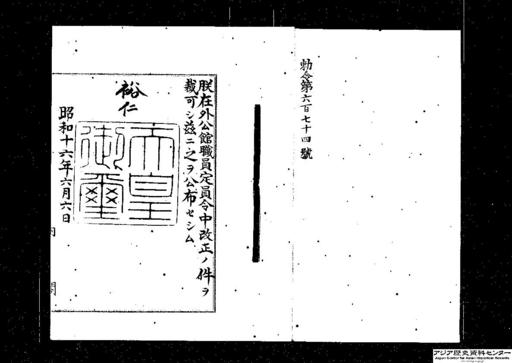 勅令第六百七十四號
朕在外公館職員定員令中改正ノ件ヲ
裁可シ茲ニ之ヲ公布セシム
裕仁
天皇
御璽
昭和十六年六月六日
内
閣
アジア歴史資料センター
Japan Center for Asian Historical Records